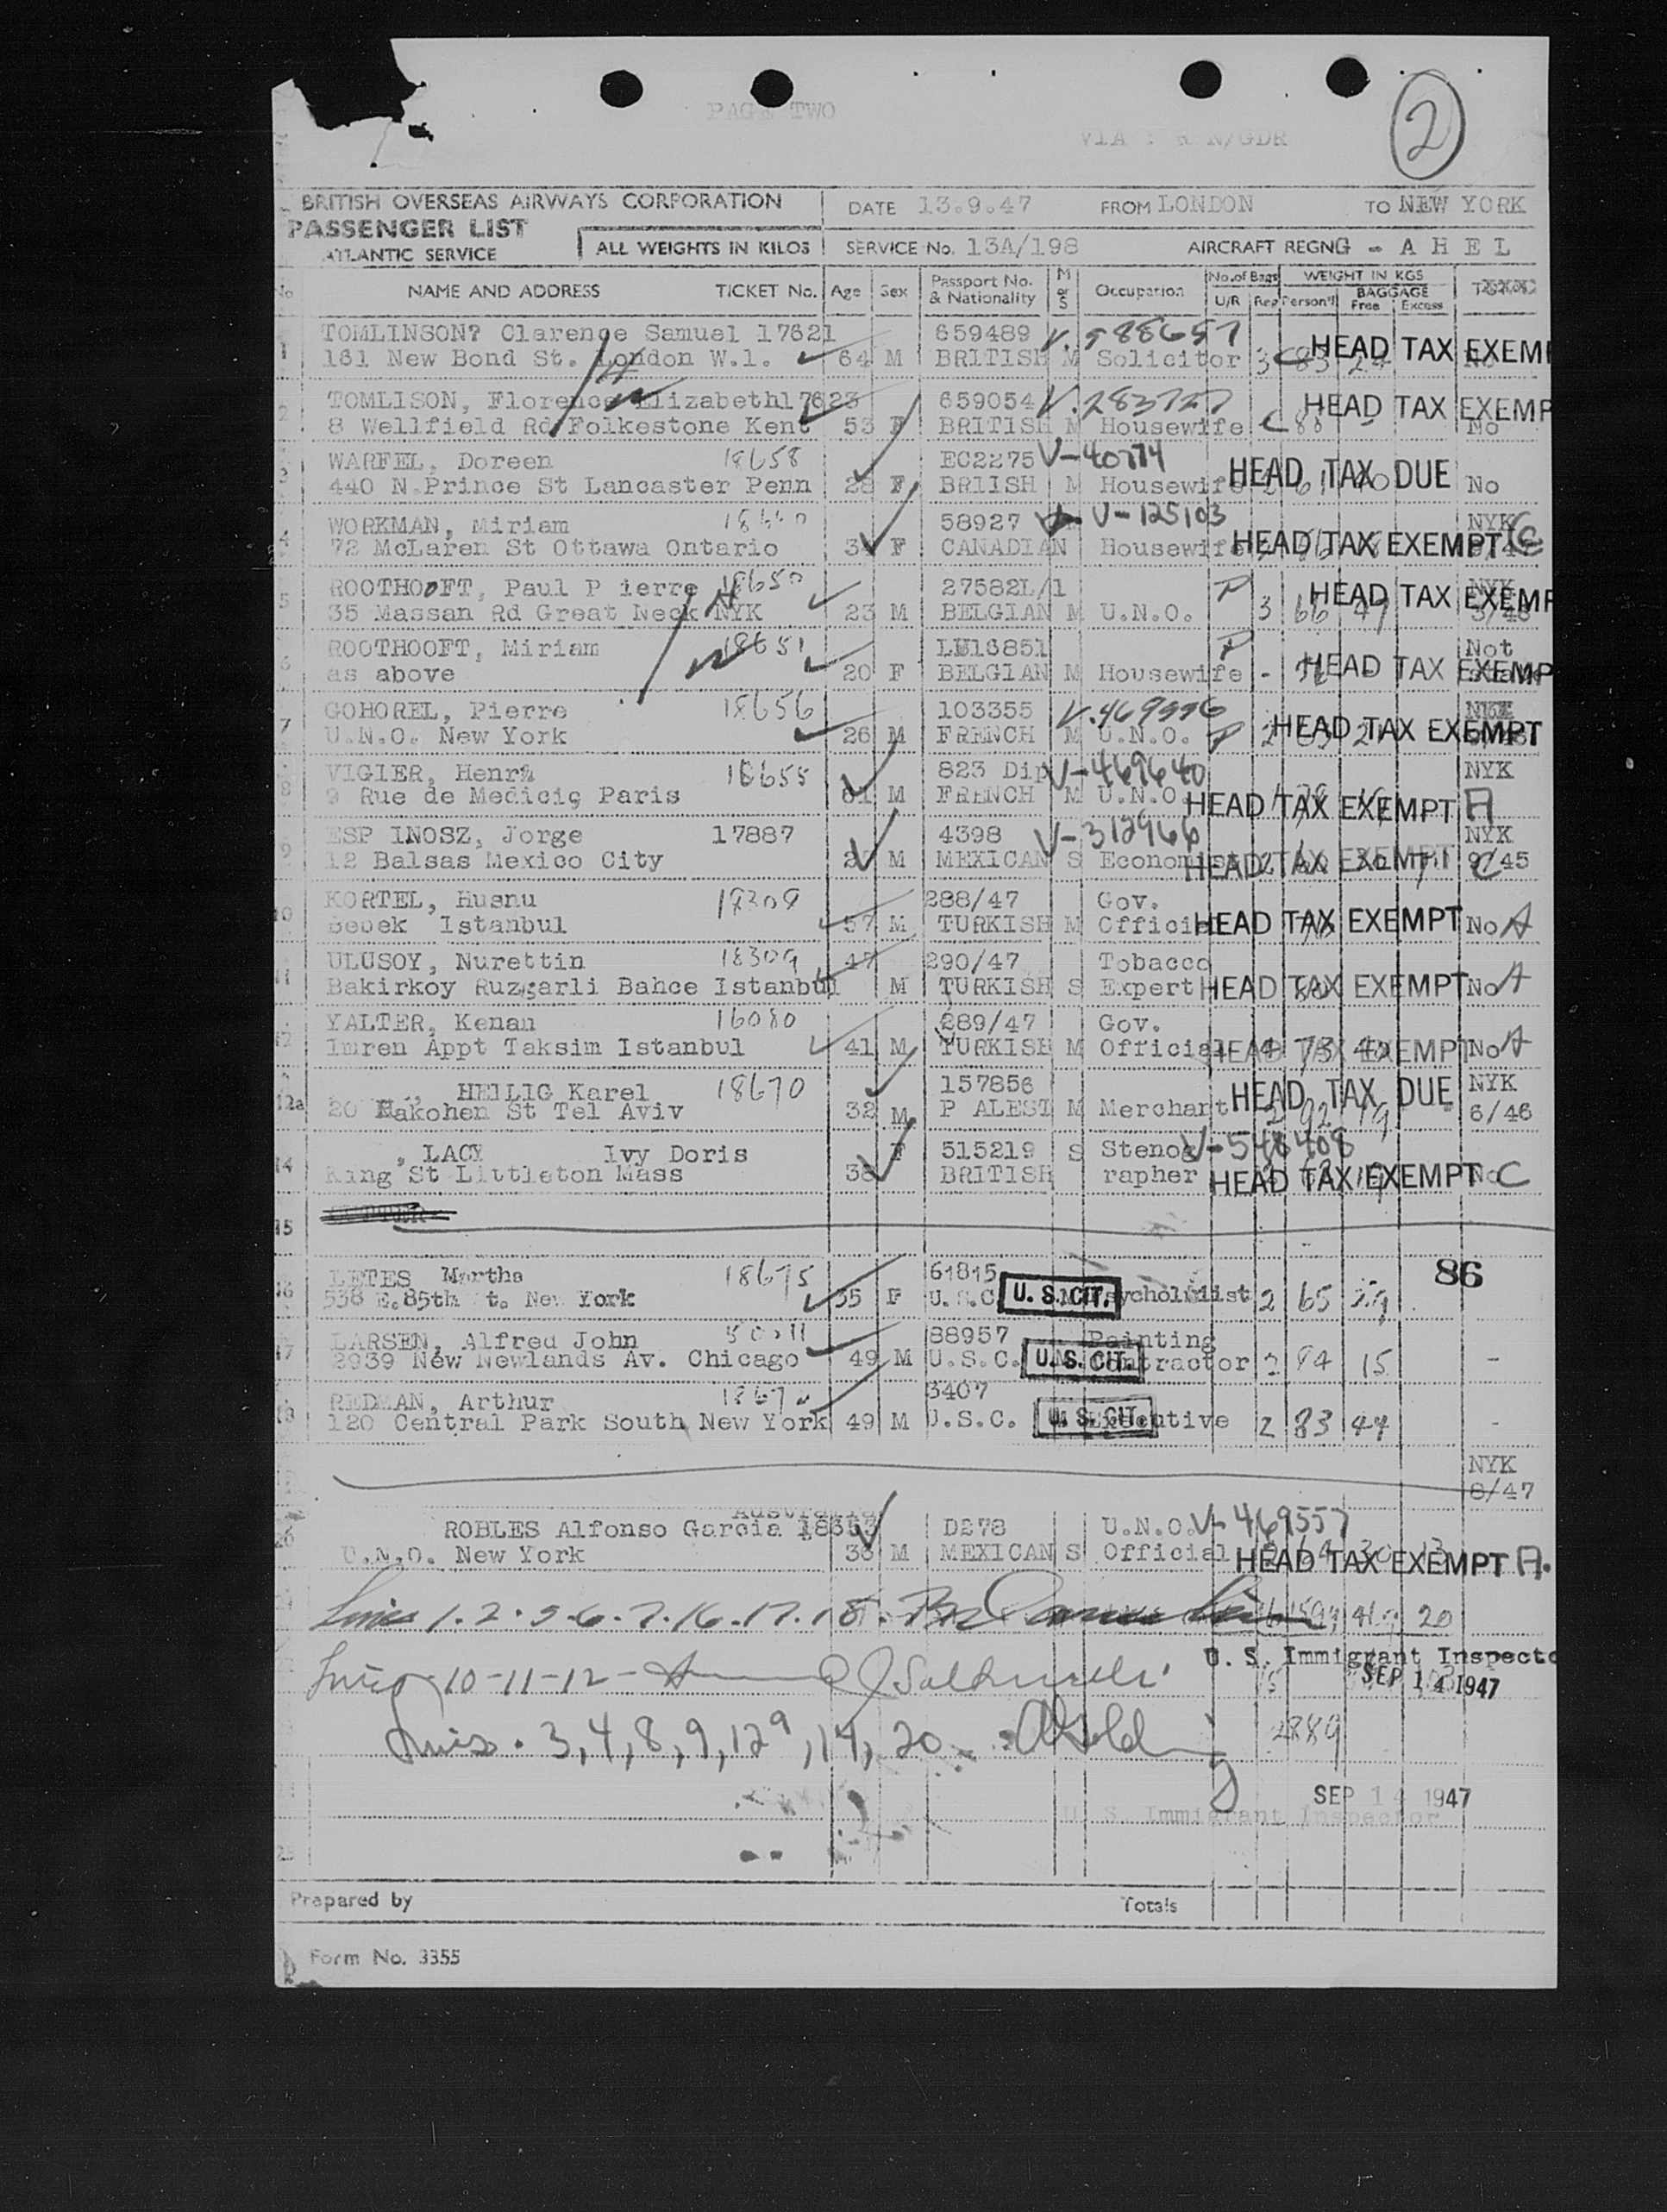 PAGE TWO
2
BRITISH OVERSEAS AIRWAYS CORPORATION DATE 13.9.47 FROM LONDON TO NEW YORK
PASSENGER LIST
ATLANTIC SERVICE ALL WEIGHTS IN KILOS SERVICE No. 13A/198 AIRCRAFT REGNG - A H E L
No NAME AND ADDRESS TICKET No. Age Sex Passport No. & Nationality M or S Occupation No. of Bags U/R Reg WEIGHT IN KGS Person'l BAGGAGE Free Excess
TOMLINSON? Clarence Samuel 17621 659489 V.988657
1 161 New Bond St. London W.1. 64 M BRITISH M Solicitor 3 83 24 HEAD TAX EXEM No
TOMLISON, Florence Elizabeth17623 659054 V.283727 HEAD TAX EXEMP
2 8 Wellfield Rd Folkestone Kent 53 F BRITISH M Housewife 88 No
WARFEL, Doreen 18658 EC2275 V-40774
3 440 N.Prince St Lancaster Penn 28 F BRIISH M Housewife HEAD TAX DUE No
WORKMAN, Miriam 58927 V-125103 NYK
4 72 McLaren St Ottawa Ontario F CANADIAN Housewife HEAD TAX EXEMPT C
ROOTHOOFT, Paul P ierre 18650 27582L/1 P HEAD TAX EXEMP NYK
5 35 Massan Rd Great Neck NYK 23 M BELGIAN M U.N.O. 3 66 49
ROOTHOOFT, Miriam 18651 LU16851 P Not
6 as above 20 F BELGIAN M Housewife - HEAD TAX EXEMP
GOHOREL, Pierre 18656 103355 V.469996
7 U.N.O. New York 26 M FRENCH M U.N.O. P 2 HEAD TAX EXEMPT
VIGIER, Henri 18655 823 Dip V-469640 NYK
8 9 Rue de Medicis Paris 61 M FRENCH M U.N.O. HEAD TAX EXEMPT A
ESP INOSZ, Jorge 17887 4398 V-312966 NYK
9 12 Balsas Mexico City M MEXICAN S Economist HEAD TAX EXEMPT C 9/45
KORTEL, Husnu 18308 288/47 Gov.
10 Bebek Istanbul 57 M TURKISH M Officia HEAD TAX EXEMPT No A
ULUSOY, Nurettin 18309 47 290/47 Tobacco
11 Bakirkoy Ruzgarli Bahce Istanbul M TURKISH S Expert HEAD TAX EXEMPT No A
YALTER, Kenan 16080 289/47 Gov.
12 Imren Appt Taksim Istanbul 41 M TURKISH M Official HEAD TAX EXEMPT No A
HEILIG Karel 18670 157856 HEAD TAX DUE NYK
12a 20 Hakohen St Tel Aviv 32 M P ALEST M Merchant 2 92 19 6/46
, LACY Ivy Doris F 515219 S Stenog V-548408
14 King St Littleton Mass 38 BRITISH rapher HEAD TAX EXEMPT No C
15
LETES Martha 18675 61815 86
16 538 E.85th t. New York 35 F U.S.C. U. S. CIT. 2 65 29
LARSEN, Alfred John 88957 Painting
17 2939 New Newlands Av. Chicago 49 M U.S.C. U. S. CIT. Contractor 2 94 15 -
REDMAN, Arthur 3407
18 120 Central Park South New York 49 M U.S.C. U. S. CIT. Executive 2 83 44 -
NYK
8/47
ROBLES Alfonso Garcia 18353 D278 U.N.O. V-469557
20 U.N.O. New York 36 M MEXICAN S Official HEAD TAX EXEMPT A.
Lines 1.2.5.6.7.16.17.18.
U. S. Immigrant Inspecto
Lines 10-11-12- SEP 14 1947
Lines. 3,4,8,9,12a,14,20 2889
SEP 14 1947
U. S. Immigrant Inspector
Prepared by Totals
Form No. 3355